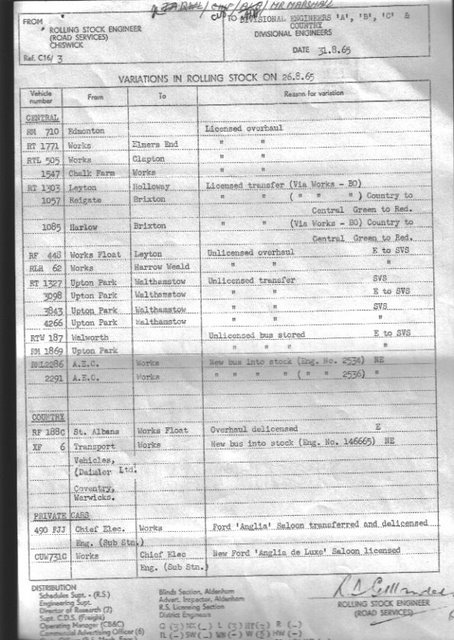 FROM
ROLLING STOCK ENGINEER
(ROAD SERVICES)
CHISWICK
Ref. C16/ 3
TO DIVISIONAL ENGINEERS 'A', 'B', 'C' &
COUNTRY
DIVISIONAL ENGINEERS
DATE 31.8.65
VARIATIONS IN ROLLING STOCK ON 26.8.65
Vehicle number From To Reason for variation
CENTRAL
RM 710 Edmonton Licensed overhaul
RT 1771 Works Elmers End " "
RTL 505 Works Clapton " "
1547 Chalk Farm Works " "
RT 1303 Leyton Holloway Licensed transfer (Via Works - BO)
1057 Reigate Brixton " " ( " " " ) Country to
Central Green to Red.
1085 Harlow Brixton " " (Via Works - BO) Country to
Central Green to Red.
RF 448 Works Float Leyton Unlicensed overhaul E to SVS
RLH 62 Works Harrow Weald " " "
RT 1327 Upton Park Walthamstow Unlicensed transfer SVS
3098 Upton Park Walthamstow " " E to SVS
3843 Upton Park Walthamstow " " SVS
4266 Upton Park Walthamstow " " "
RTW 187 Walworth Unlicensed bus stored E to SVS
RM 1869 Upton Park " " " "
RML2286 A.E.C. Works New bus into stock (Eng. No. 2534) NE
2291 A.E.C. Works " " " " ( " " 2536) "
COUNTRY
RF 188C St. Albans Works Float Overhaul delicensed E
XF 6 Transport Works New bus into stock (Eng. No. 146665) NE
Vehicles,
(Daimler Ltd.
Coventry,
Warwicks.
PRIVATE CARS
490 FJJ Chief Elec. Works Ford 'Anglia' Saloon transferred and delicensed
Eng. (Sub Stn.)
CUW731C Works Chief Elec New Ford 'Anglia de Luxe' Saloon licensed
Eng. (Sub Stn.)
DISTRIBUTION
Schedules Supt. - (R.S)
Engineering Supt.
Director of Research (2)
Supt. C.D.S. (Freight)
Operating Manager (CB&C)
Commercial Advertising Officer (6)
Blinds Section, Aldenham
Advert. Inspector, Aldenham
R.S. Licensing Section
District Engineers
ROLLING STOCK ENGINEER
(ROAD SERVICES)